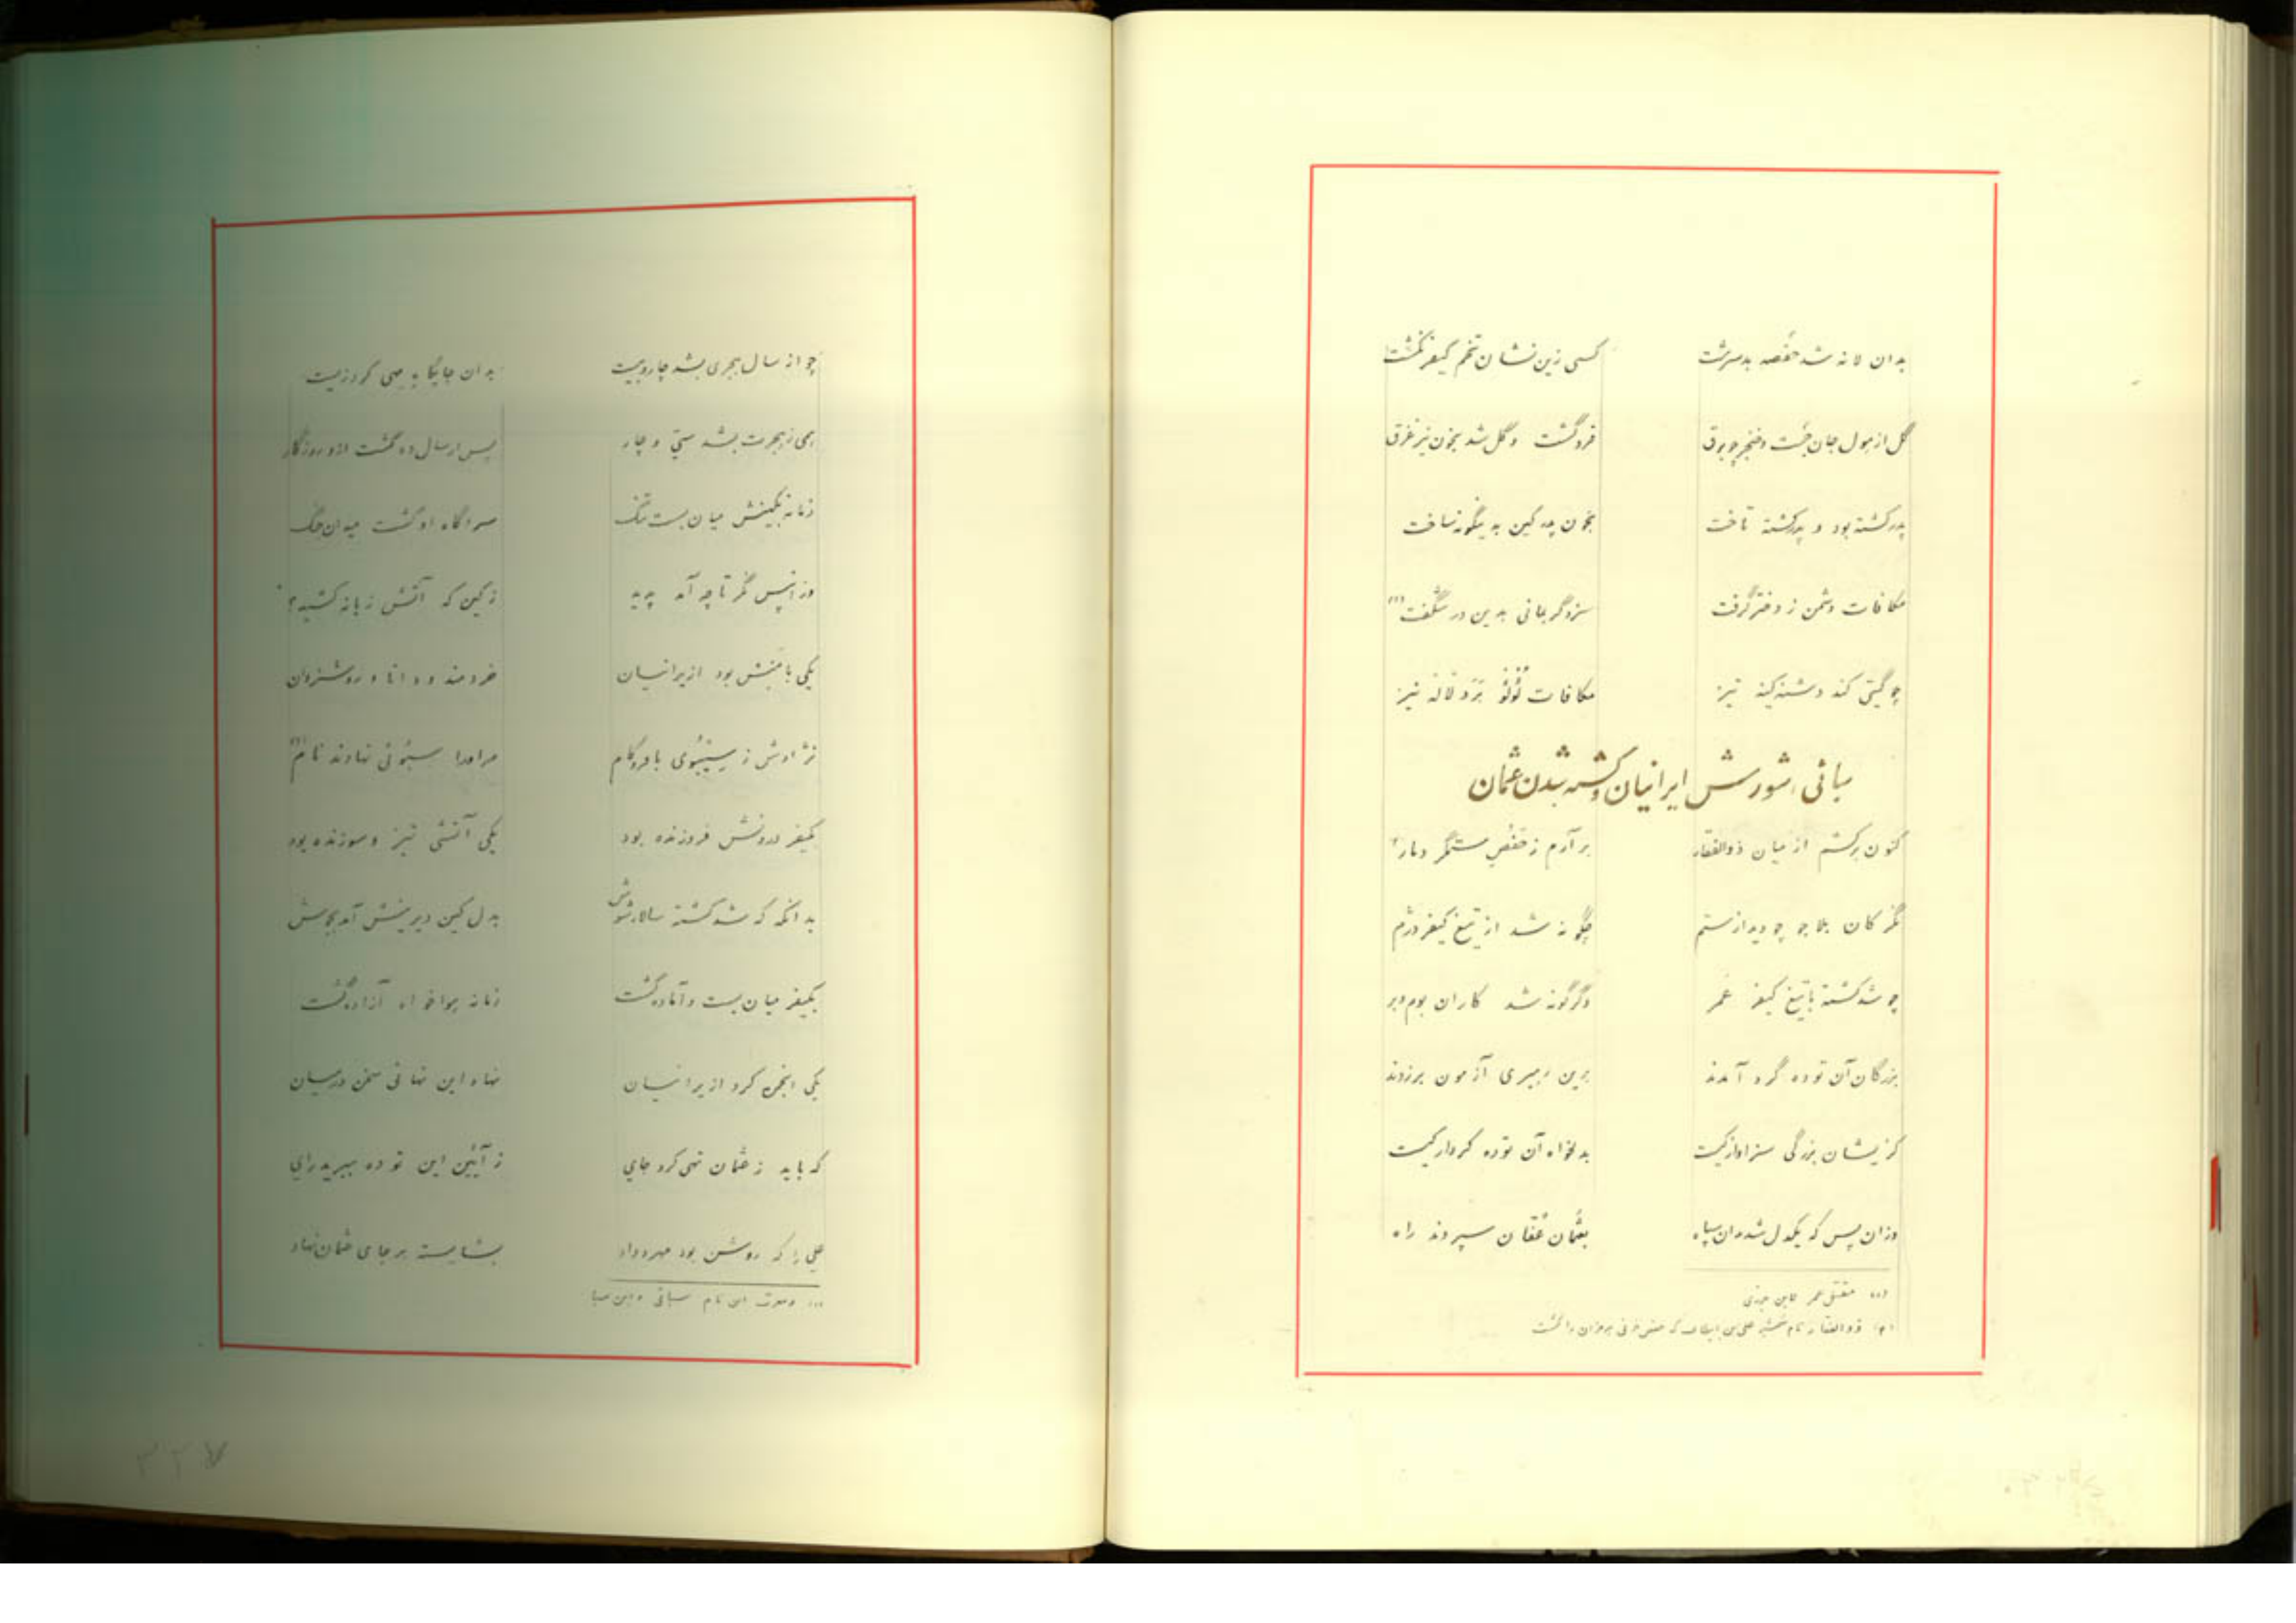 بدان لانه شد حفصه بدسرشت کسی زین نشان تخم کیفر نکشت
گل از هول جان جست و خنجر چو برق فرو گشت و گل شد بخون نیز غرق
پدر کشته بود و پدر کشته تاخت بخون پدر کین بدینگونه ساخت
مکافات دشمن ز دختر گرفت سزد گر بمانی بدین در شگفت (۱)
چو گیتی کند دشنه کینه تیز مکافات لؤلؤ برد لانه نیز
سبائی، شورش ایرانیان و کشته شدن عثمان
کنون برکشم از میان ذوالفقار برآرم ز حفص ستمگر دمار ۲
نگر کان بلاجو چو دید از ستم چگونه شد از تیغ کیفر دژم
چو شد کشته با تیغ کیفر عمر دگرگونه شد کار ان بوم و بر
بزرگان آن توده گرد آمدند برین رهبری آزمون برزدند
کز یشان بزرگی سزاوار کیست بدلخواه آن توده کردار کیست
وزان پس که یکدل شد دان سپاه بعثمان عفان سپردند راه
(۱) مقتل عمر ابن جوزی
(۲) ذوالفقار نام شمشیر علی بن ابیطالب که
چو از سال هجری بشد چار و بیست بدان جایگا به می کرد زیست
همی ز هجرت بشد سی و چار پس از سال ده گشت ازو روزگار
زمانه بکینش میان بست تنگ سراگاه او گشت میدان جنگ
وز آنپس نگر تا چه آمد پدید ز کین که آتش زبانه کشید؟
یکی با منش بود از یرانیان خردمند و دانا و روشنروان
نژادش ز سیبوی با فر و کام مر او را سبوئی نهادند نام (۱)
بکیفر درونش فروزنده بود یکی آتشی تیز و سوزنده بود
بدانگه که شد کشته سالار شوش بدل کین دیرینش آمد بجوش
بکیفر میان بست و آماده گشت زمانه هواخواه آزاده گشت
یکی انجمن کرد از یرانیان نهاد این نهانی سخن در میان
که باید ز عثمان تهی کرد جای ز آئین این توده ببرید رای
علی را که روشن بود مهر و داد بشایسته بر جای عثمان نهاد
(۱) ومعرب این نام سبائی و ابن سبا
۳۲۷